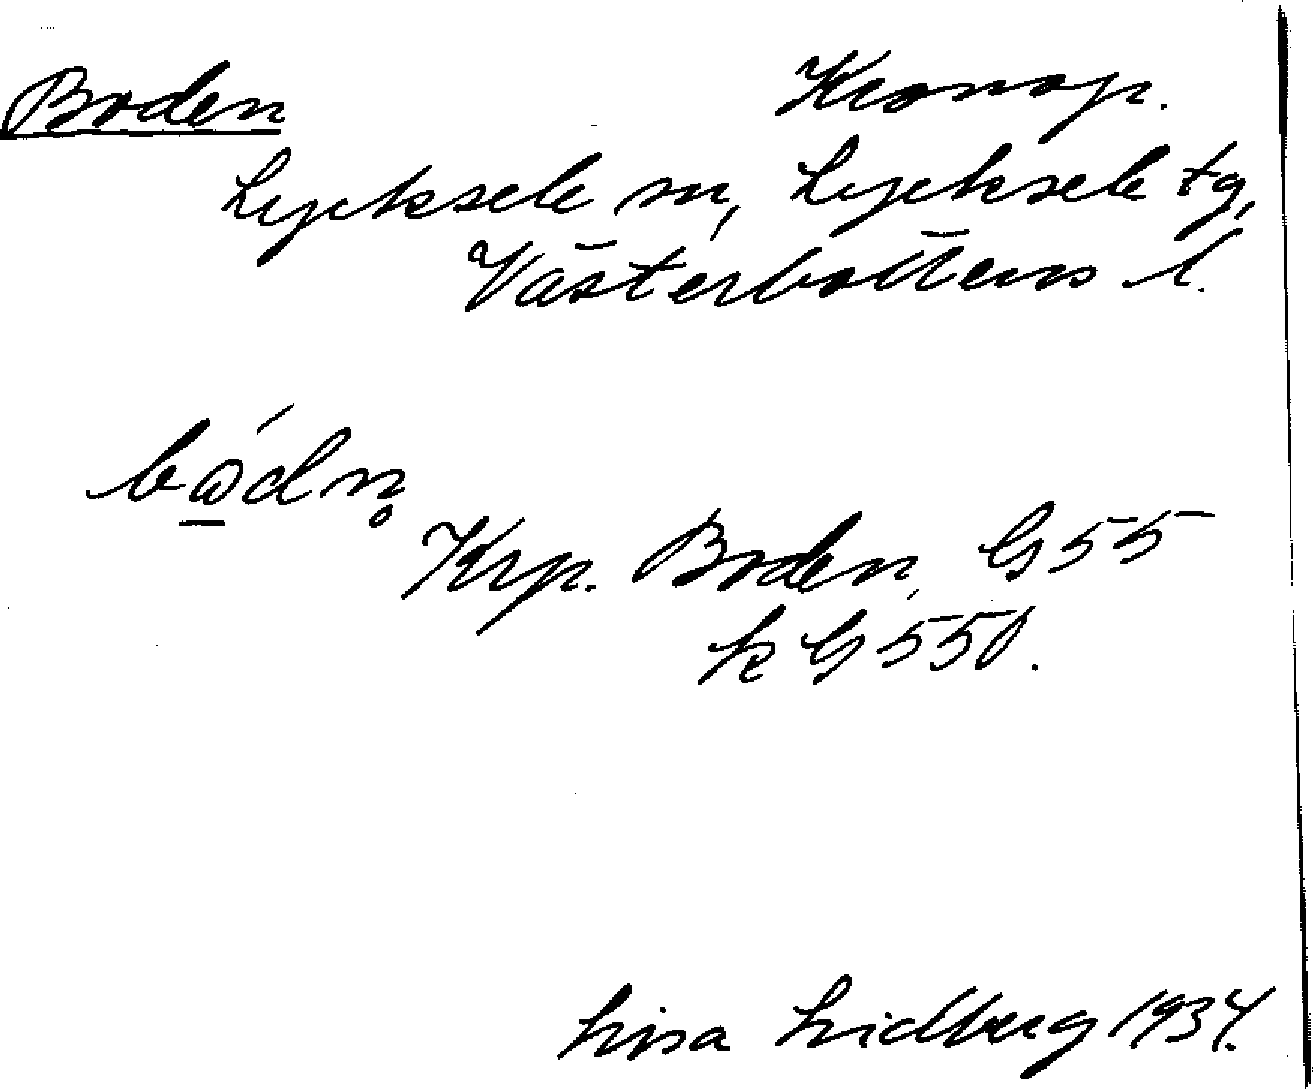 Boden Kronop.
Lycksele sn, Lycksele tg,
Västerbottens l.
bώ̱dn̥
Krp. Boden, G55
k G550.
Lisa Lidberg 1934.